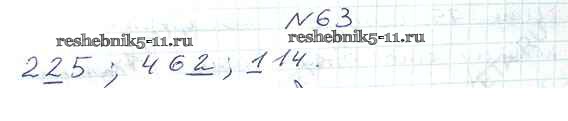 N63
reshebnik5-11.ru reshebnik5-11.ru
225; 462; 114.